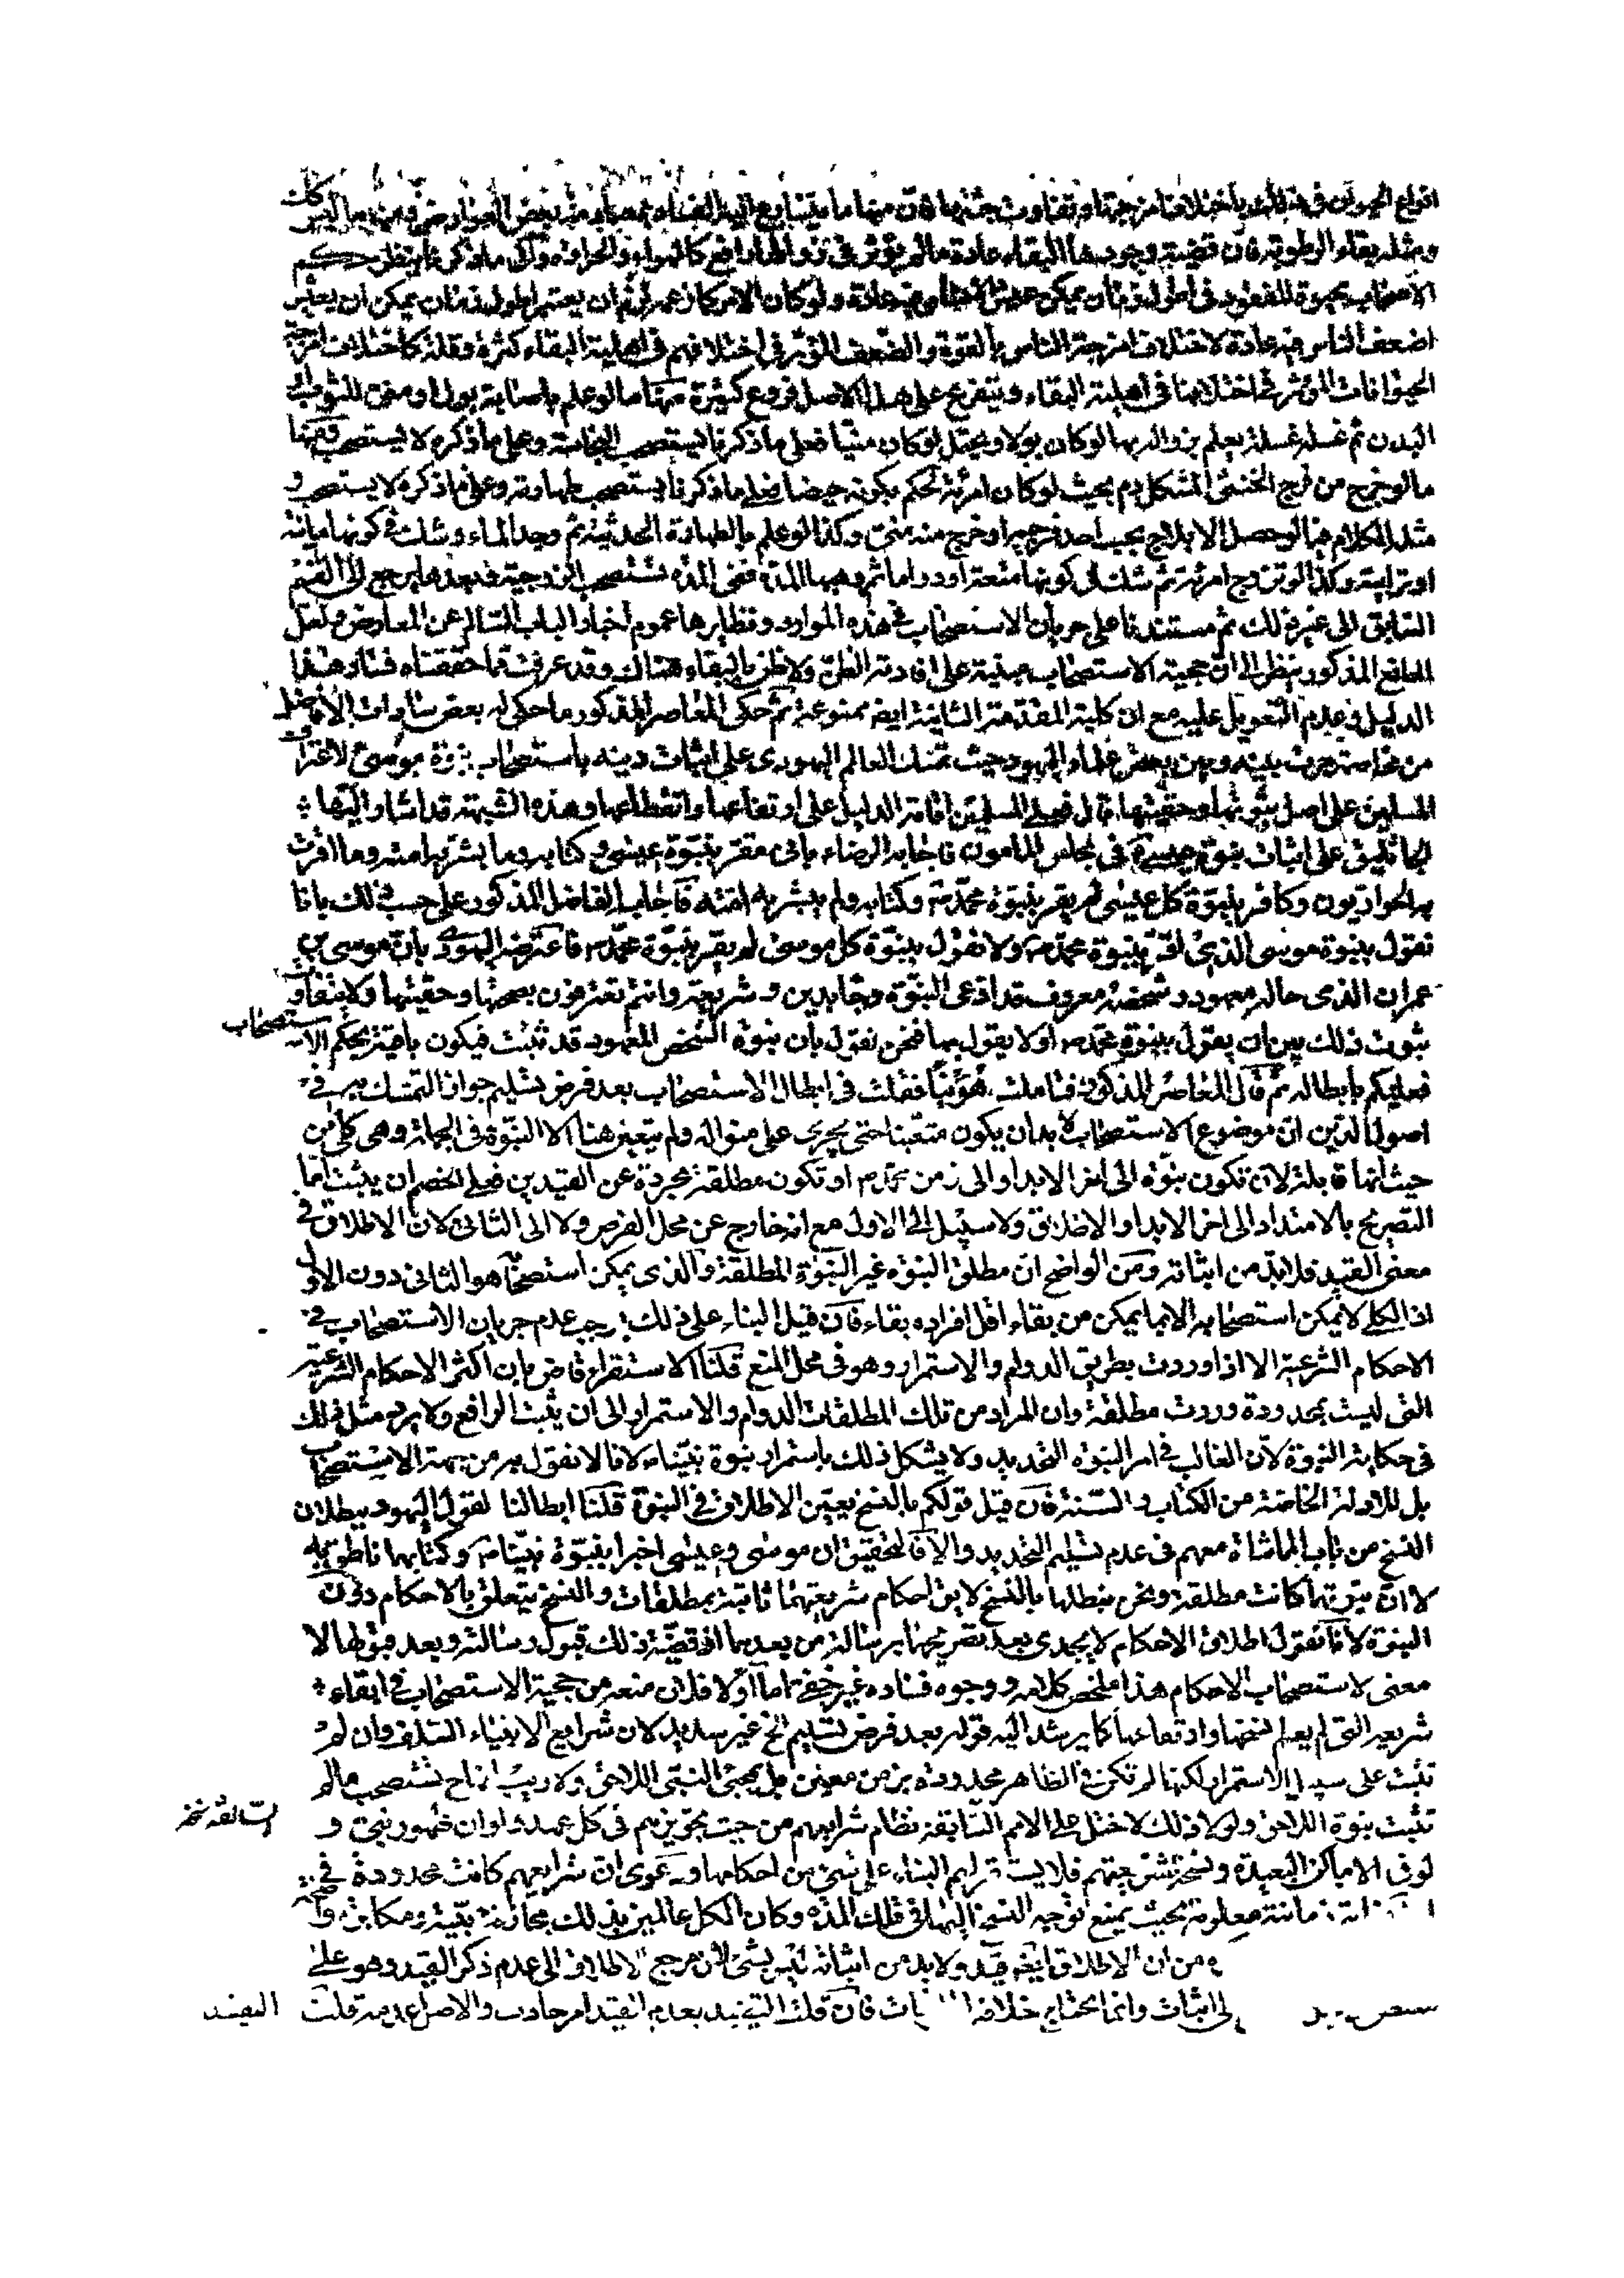 انواع الحيوان في ذلك باختلاف امزجتها وتفاوت جثتها فان منها ما يتسارع اليه الفساد بمصادفة بعض العوارض ومنها ما ليس كذلك
ومثله بقاء الرطوبة فان قضية وجودها البقاء عادة ما لم يؤثر في زوالها رافع كالهواء والحرارة وعلى ما ذكرنا يتفرع حكم
الاستصحاب بحيوة المفقود في اطول زمان يمكن عيش الانسان فيه عادة ولو كان الامر كما زعمه لزم ان يعتبر اطول زمان يمكن ان يعيش
اضعف الناس فيه عادة لاختلاف امزجة الناس بالقوة والضعف المؤثر في اختلافهم في اهلية البقاء كثرة وقلة كاختلاف امزجة
الحيوانات المؤثر في اختلافها في اهلية البقاء ويتفرع على هذا الاصل فروع كثيرة منها ما لو علم باصابة بول او مني للثوب او
البدن ثم غسله غسلة يعلم بزواله بها لو كان بولا ويحتمل لو كان منيا فعلى ما ذكرنا يستصحب النجاسة وعلى ما ذكره لا يستصحب ومنها
ما لو خرج من فرج الخنثى المشكل دم بحيث لو كان امرئة لحكم بكونه حيضا فعلى ما ذكرنا يستصحب طهارته وعلى ما ذكره لا يستصحب و
مثله الكلام فيما لو حصل الايلاج بحيث احد فرجيها او خرج منه مني وكذا لو علم بالطهارة الحدثية ثم وجد الماء وشك في كونها مائية
او ترابية وكذا لو تزوج امرئة ثم شك في كونها متعة او دواما ثم وهبها المدة ففي المدة تستصحب الزوجية وبعدها يرجع الى القسم
السابق الى غير ذلك ثم مستندنا على جريان الاستصحاب في هذه الموارد ونظايرها عموم اخبار الباب السالم عن المعارض ولعل
المانع المذكور ينظر الى ان حجية الاستصحاب مبنية على افادته الظن ولا ظن بالبقاء هناك وقد عرفت مما حققناه فساد هذا
الدليل وعدم التعويل عليه مع ان كلية المقدمة الثانية ايضا ممنوعة ثم حكى المعاصر المذكور ما حكى له بعض سادات الافاضل
من مخاصمة جرت بينه وبين بعض علماء اليهود حيث تمسك العالم اليهودي على اثبات دينه باستصحاب نبوة موسى لاعتراف
المسلمين على اصل ثبوتها وحقيتها قال فعلى المسلمين اقامة الدليل على ارتفاعها وانقطاعها وهذه الشبهة قد اشار اليها
الجاثليق على اثبات نبوة عيسى في مجلس المامون فاجابه الرضاء باني مقر بنبوة عيسى وكتابه وما بشر به امته وما اقرت
به الحواريون وكافر بنبوة كل عيسى لم يقر بنبوة محمد ص وكتابه ولم يبشر به امته فاجاب الفاضل المذكور على حسب ذلك بانا
نقول بنبوة موسى الذي اقر بنبوة محمد ص ولا نقول بنبوة كل موسى لم يقر بنبوة محمد ص فاعترضه اليهودي بان موسى بن
عمران الذي حاله معهود وشخصه معروف قد ادعى النبوة وجاء بدين وشريعة وانتم تعترفون بصحتها وحقيتها ولا يتفاوت
ثبوت ذلك بين ان يقول بنبوة محمد ص او لا يقول بها فنحن نقول بان نبوة الشخص المعهود قد ثبتت فيكون باقية بحكم الاستصحاب
فعليكم بابطاله ثم قال المعاصر المذكور فتاملت هوينا فقلت في ابطال الاستصحاب بعد فرض تسليم جواز التمسك به في
اصول الدين ان موضوع الاستصحاب لا بد ان يكون متعينا حتى يجري على منواله ولم يتعين هنا الا النبوة في الجملة وهي كلي من
حيث انها قابلة لان تكون نبوة الى اخر الابد او الى زمن محمد ص او تكون مطلقة مجردة عن القيدين فعلى الخصم ان يثبت اما
التصريح بالامتداد الى اخر الابد او الاطلاق ولا سبيل الى الاول مع انه خارج عن محل الفرض ولا الى الثاني لان الاطلاق في
معنى القيد فلا بد من اثباته ومن الواضح ان مطلق النبوة غير النبوة المطلقة والذي يمكن استصحابها هو الثاني دون الاول
اذ الكلي لا يمكن استصحابه الا بما يمكن من بقاء اقل افراده بقاء فان قيل البناء على ذلك يوجب عدم جريان الاستصحاب في
الاحكام الشرعية الا اذا وردت بطريق الدوام والاستمرار وهو في محل المنع قلنا الاستقراء قاض بان اكثر الاحكام الشرعية
التي ليست بمحدودة وردت مطلقة وان المراد من تلك المطلقات الدوام والاستمرار الى ان يثبت الرافع ولا يرد مثل ذلك
في حكاية النبوة لان الغالب في امر النبوة التحديد ولا يشكل ذلك باستمرار نبوة نبينا ص لانا لا نقول به من جهة الاستصحاب
بل للادلة الخاصة من الكتاب والسنة فان قيل قولكم بالنسخ يعين الاطلاق في النبوة قلنا ابطالنا لقول اليهود ببطلان
النسخ من باب المماشاة معهم في عدم تسليم التحديد والا فالتحقيق ان موسى وعيسى اخبرا بنبوة نبينا ص وكتابهما ناطق به
لا ان نبوتهما كانت مطلقة ونحن نبطلها بالنسخ لا يق احكام شريعتهما ثابتة بمطلقات والنسخ يتعلق بالاحكام دون
النبوة لانا نقول اطلاق الاحكام لا يجدي بعد تصريحهما برسالة من بعدهما اذ قضية ذلك قبول رسالته وبعد قبولها لا
معنى لاستصحاب الاحكام هذا ملخص كلامه ووجوه فساده غير خفية اما اولا فلان منعه من حجية الاستصحاب في ابقاء
شريعة التي لم يعلم نسخها وارتفاعها كما يرشد اليه قوله بعد فرض تسليم الخ غير سديد لان شرايع الانبياء السلف وان لم
تثبت على سبيل الاستمرار لكنها لم تكن في الظاهر محدودة بزمن معين بل بمجئ النبي اللاحق ولا ريب انها ح تستصحب ما لم
تثبت نبوة اللاحق ولولا ذلك لاختل على الامم السابقة نظام شرايعهم من حيث تجويزهم في كل عهد واوان ظهور نبي و
السابقة نخ
لو في الاماكن البعيدة ونسخ شريعتهم فلا يستقر لهم البناء على شئ من احكامها ودعوى ان شرايعهم كانت محدودة في
معلومة بحيث يمتنع توجه النسخ اليها في تلك المدة وكان الكل عالمين بذلك مجازفة بينة ومكابرة
من ان الاطلاق ايضا قيد ولا بد من اثباته ليس بشئ لان مرجع الاطلاق الى عدم ذكر القيد وهو على
الى اثبات وانما يحتاج خلافه فان قلت التقييد بعدم القيد امر حادث والاصل عدمه قلت